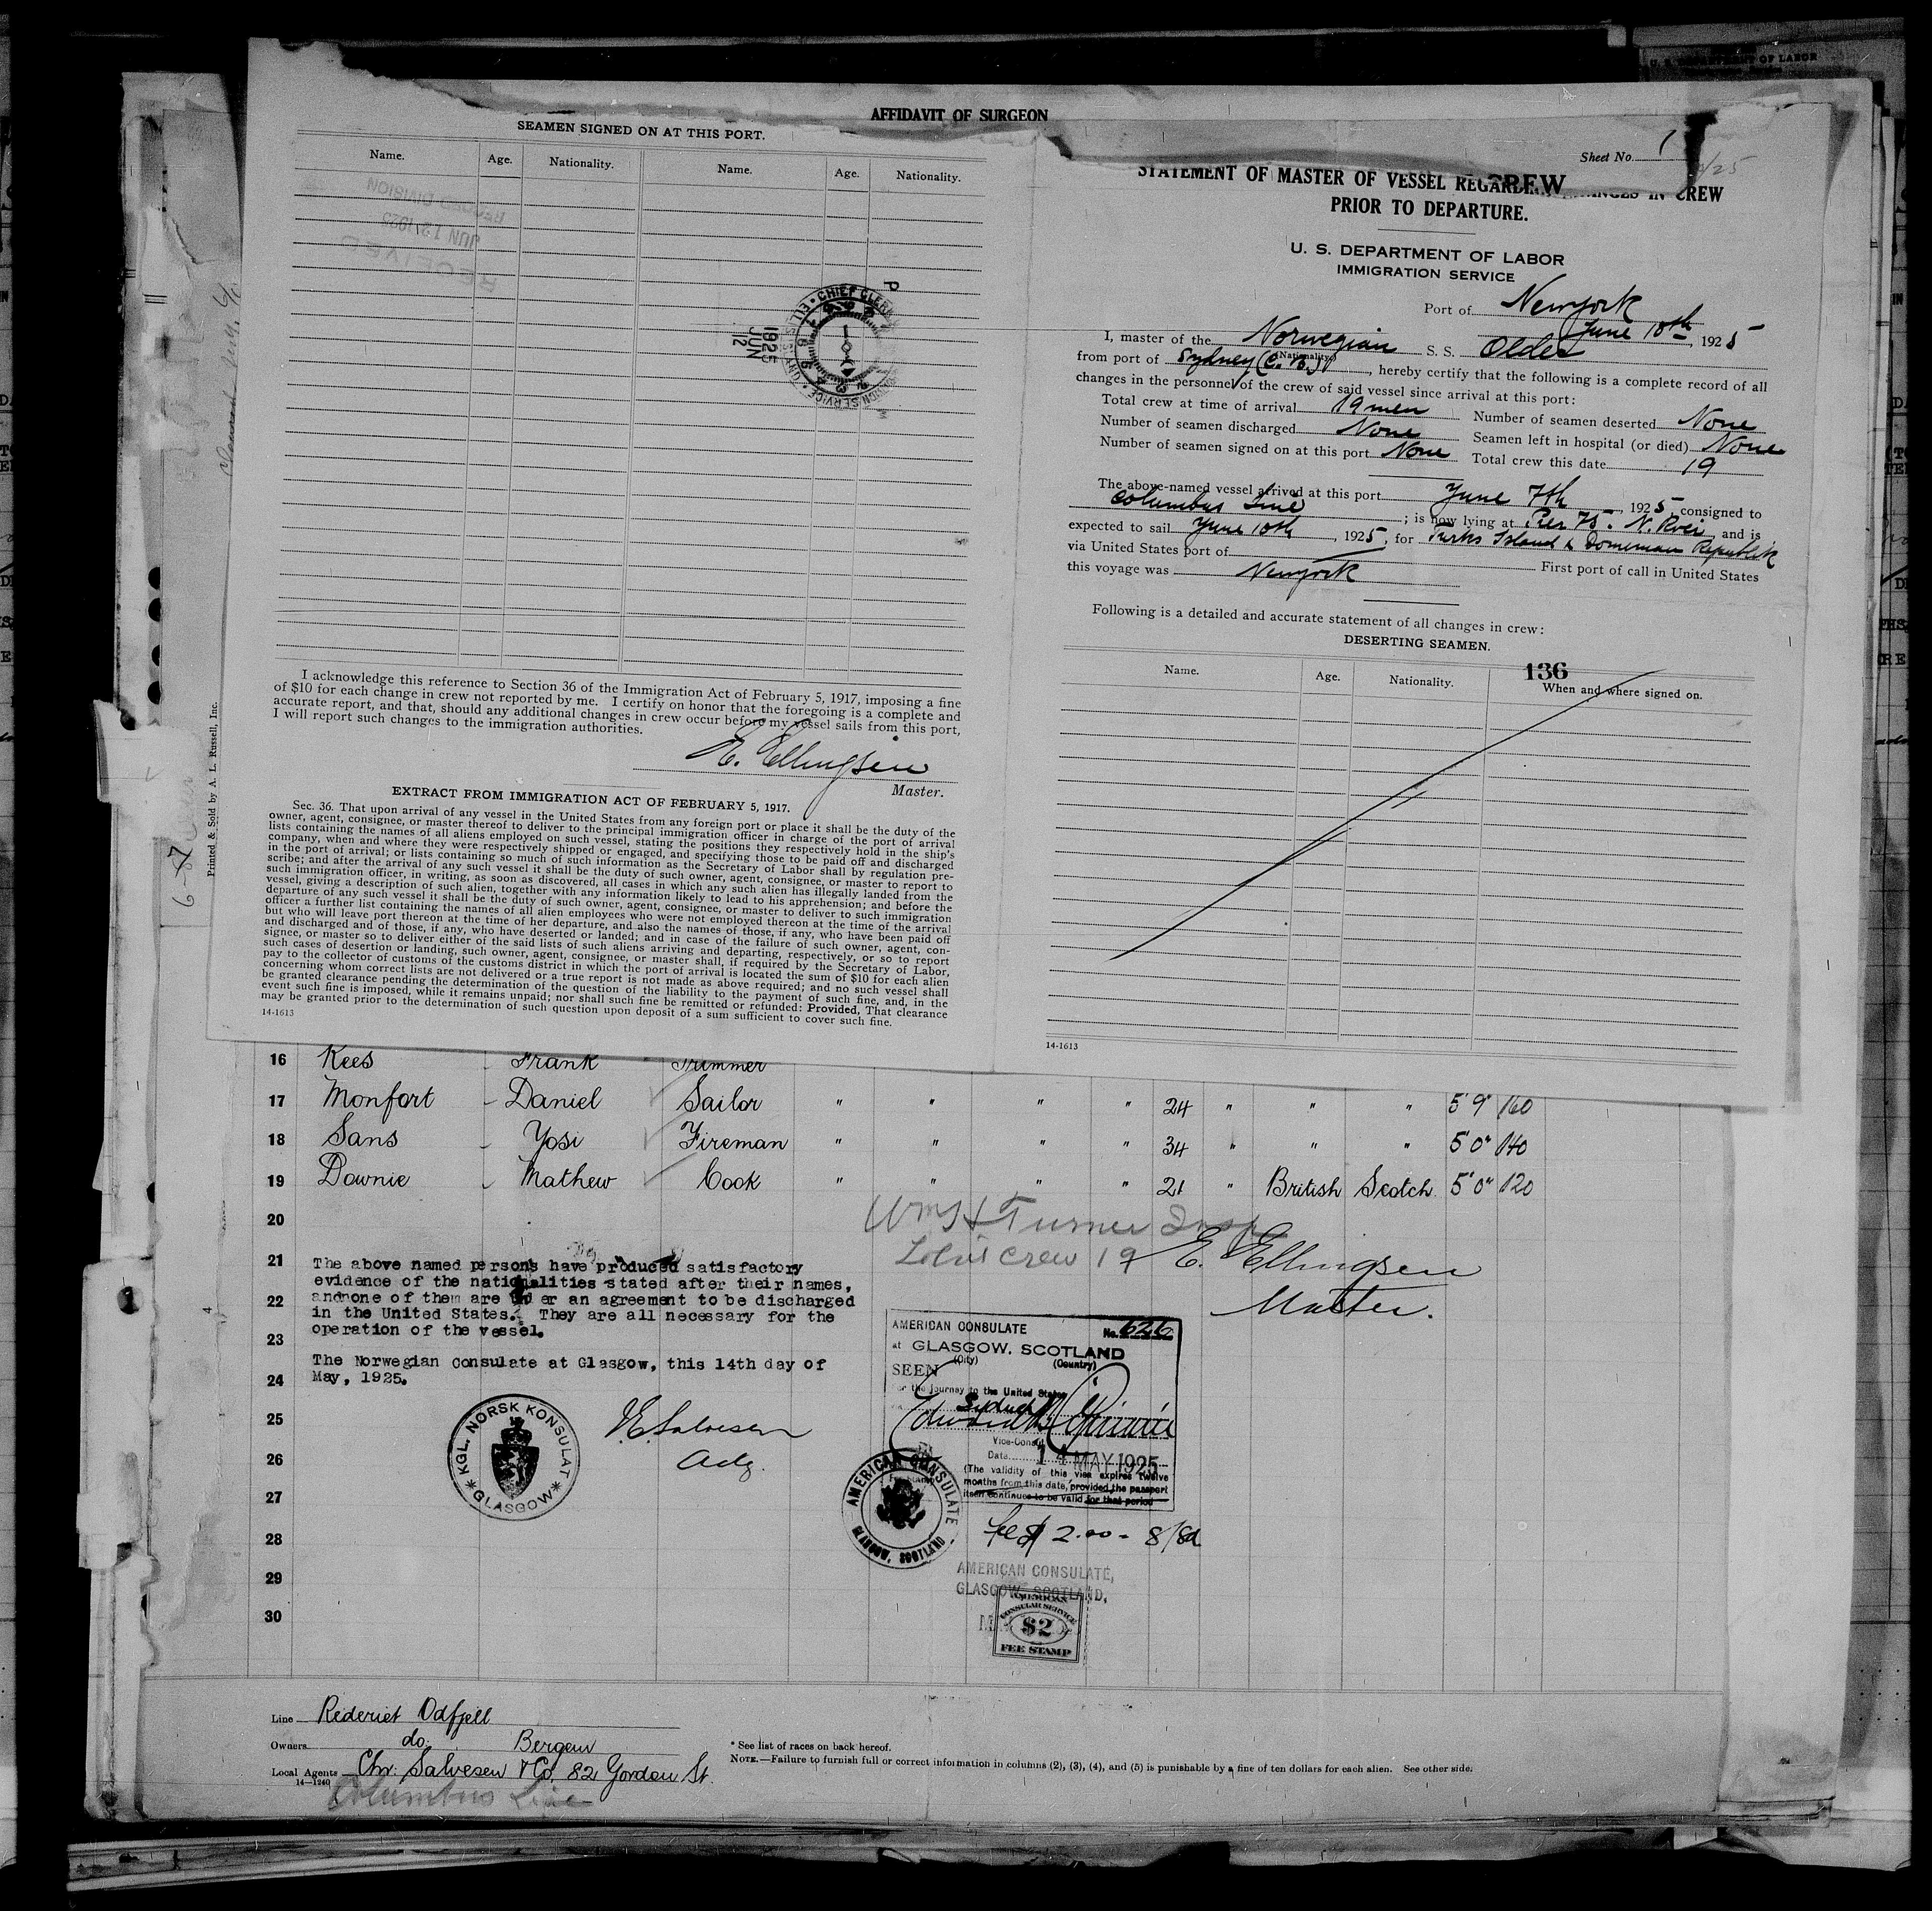 U. S. DEPARTMENT OF LABOR
AFFIDAVIT OF SURGEON
SEAMEN SIGNED ON AT THIS PORT.
Name. Age. Nationality. Name. Age. Nationality.
RECEIVED
JUN 12 1925
RECORD DIVISION
CHIEF CLERK
1925
JUN
12
P
M
I acknowledge this reference to Section 36 of the Immigration Act of February 5, 1917, imposing a fine
of $10 for each change in crew not reported by me. I certify on honor that the foregoing is a complete and
accurate report, and that, should any additional changes in crew occur before my vessel sails from this port,
I will report such changes to the immigration authorities.
E. Ellingsen
Master.
EXTRACT FROM IMMIGRATION ACT OF FEBRUARY 5, 1917.
Sec. 36. That upon arrival of any vessel in the United States from any foreign port or place it shall be the duty of the
owner, agent, consignee, or master thereof to deliver to the principal immigration officer in charge of the port of arrival
lists containing the names of all aliens employed on such vessel, stating the positions they respectively hold in the ship's
company, when and where they were respectively shipped or engaged, and specifying those to be paid off and discharged
in the port of arrival; or lists containing so much of such information as the Secretary of Labor shall by regulation pre-
scribe; and after the arrival of any such vessel it shall be the duty of such owner, agent, consignee, or master to report to
such immigration officer, in writing, as soon as discovered, all cases in which any such alien has illegally landed from the
vessel, giving a description of such alien, together with any information likely to lead to his apprehension; and before the
departure of any such vessel it shall be the duty of such owner, agent, consignee, or master to deliver to such immigration
officer a further list containing the names of all alien employees who were not employed thereon at the time of the arrival
but who will leave port thereon at the time of her departure, and also the names of those, if any, who have been paid off
and discharged and of those, if any, who have deserted or landed; and in case of the failure of such owner, agent, con-
signee, or master so to deliver either of the said lists of such aliens arriving and departing, respectively, or so to report
such cases of desertion or landing, such owner, agent, consignee, or master shall, if required by the Secretary of Labor,
pay to the collector of customs of the customs district in which the port of arrival is located the sum of $10 for each alien
concerning whom correct lists are not delivered or a true report is not made as above required; and no such vessel shall
be granted clearance pending the determination of the question of the liability to the payment of such fine, and, in the
event such fine is imposed, while it remains unpaid; nor shall such fine be remitted or refunded: Provided, That clearance
may be granted prior to the determination of such question upon deposit of a sum sufficient to cover such fine.
14-1613
Printed & Sold by A. L. Russell, Inc.
Sheet No. 1
CREW
STATEMENT OF MASTER OF VESSEL REGARDING CHANGES IN CREW
PRIOR TO DEPARTURE.
U. S. DEPARTMENT OF LABOR
IMMIGRATION SERVICE
Port of New york
June 10th, 1925
I, master of the Norwegian S. S. Older
(Nationality)
from port of Sydney (C. B.), hereby certify that the following is a complete record of all
changes in the personnel of the crew of said vessel since arrival at this port:
Total crew at time of arrival 19 men Number of seamen deserted None
Number of seamen discharged None Seamen left in hospital (or died) None
Number of seamen signed on at this port None Total crew this date 19
The above-named vessel arrived at this port June 7th, 1925, consigned to
Columbus Line; is now lying at Pier 75. N. River, and is
expected to sail June 10th, 1925, for Turks Island & Dominican Republik
via United States port of First port of call in United States
this voyage was New york
Following is a detailed and accurate statement of all changes in crew:
DESERTING SEAMEN.
136
Name. Age. Nationality. When and where signed on.
14-1613
16 Kees Frank Trimmer
17 Monfort Daniel Sailor " " " " 24 " " " 5'9" 160
18 Sans Yosi Fireman " " " " 34 " " " 5'0" 140
19 Downie Mathew Cook " " " " 21 " British Scotch 5'0" 120
20
21
22
23
24
25
26
27
28
29
30
Wm H Turner Insp
Total crew 19
E. Ellingsen
Master.
The above named persons have produced satisfactory
evidence of the nationalities stated after their names,
andnone of them are under an agreement to be discharged
in the United States. They are all necessary for the
operation of the vessel.
The Norwegian Consulate at Glasgow, this 14th day of
May, 1925.
KGL. NORSK KONSULAT
GLASGOW
AMERICAN CONSULATE No. 626
at GLASGOW, SCOTLAND
(City) (Country)
SEEN
For the journey to the United States
Sydney
Vice-Consul
Date 14 MAY 1925
(The validity of this visa expires twelve
months from this date, provided the passport
itself continues to be valid for that period
AMERICAN CONSULATE
GLASGOW, SCOTLAND
fee $ 2.00 = 8/8d
AMERICAN CONSULATE,
GLASGOW, SCOTLAND,
AMERICAN
CONSULAR SERVICE
$2
FEE STAMP
Line Rederiet Odfjell
Owners do. Bergen
Local Agents Chr. Salvesen & Co. 82 Gordon St.
14-1240
Columbus Line
* See list of races on back hereof.
NOTE.—Failure to furnish full or correct information in columns (2), (3), (4), and (5) is punishable by a fine of ten dollars for each alien. See other side.